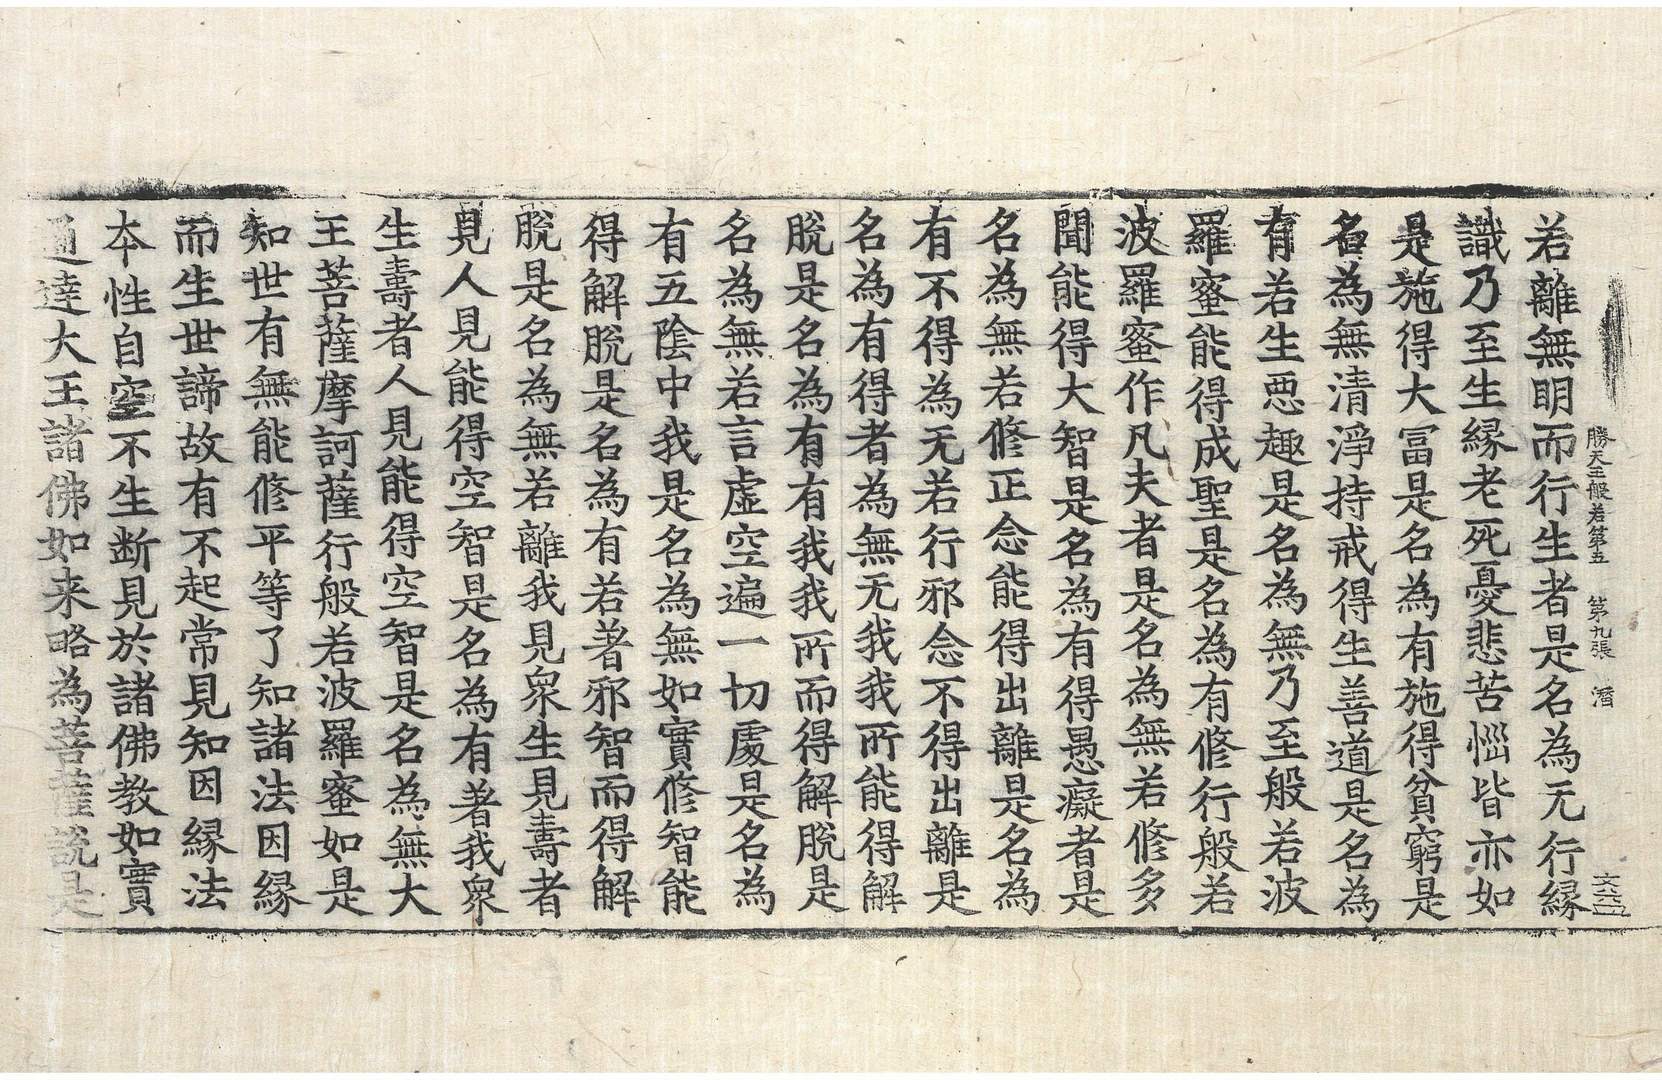 勝天王般若第五　第九張　潛
若離無明而行生者是名為无行緣
識乃至生緣老死憂悲苦惱皆亦如
是施得大冨是名為有施得貧窮是
名為無清淨持戒得生善道是名為
有若生惡趣是名為無乃至般若波
羅蜜能得成聖是名為有修行般若
波羅蜜作凡夫者是名為無若修多
聞能得大智是名為有得愚癡者是
名為無若修正念能得出離是名為
有不得為无若行邪念不得出離是
名為有得者為無无我我所能得解
脫是名為有有我我所而得解脫是
名為無若言虛空遍一切處是名為
有五陰中我是名為無如實修智能
得解脫是名為有若著邪智而得解
脫是名為無若離我見眾生見壽者
見人見能得空智是名為有著我眾
生壽者人見能得空智是名為無大
王菩薩摩訶薩行般若波羅蜜如是
知世有無能修平等了知諸法因緣
而生世諦故有不起常見知因緣法
本性自空不生断見於諸佛教如實
通達大王諸佛如来略為菩薩說是